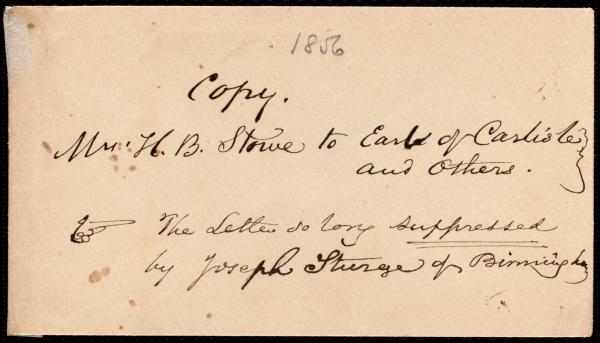 1856
Copy.
Mrs. H. B. Stowe to Earl of Carlisle
and Others.
☞ The Letter so long suppressed
by Joseph Sturge of Birmingham